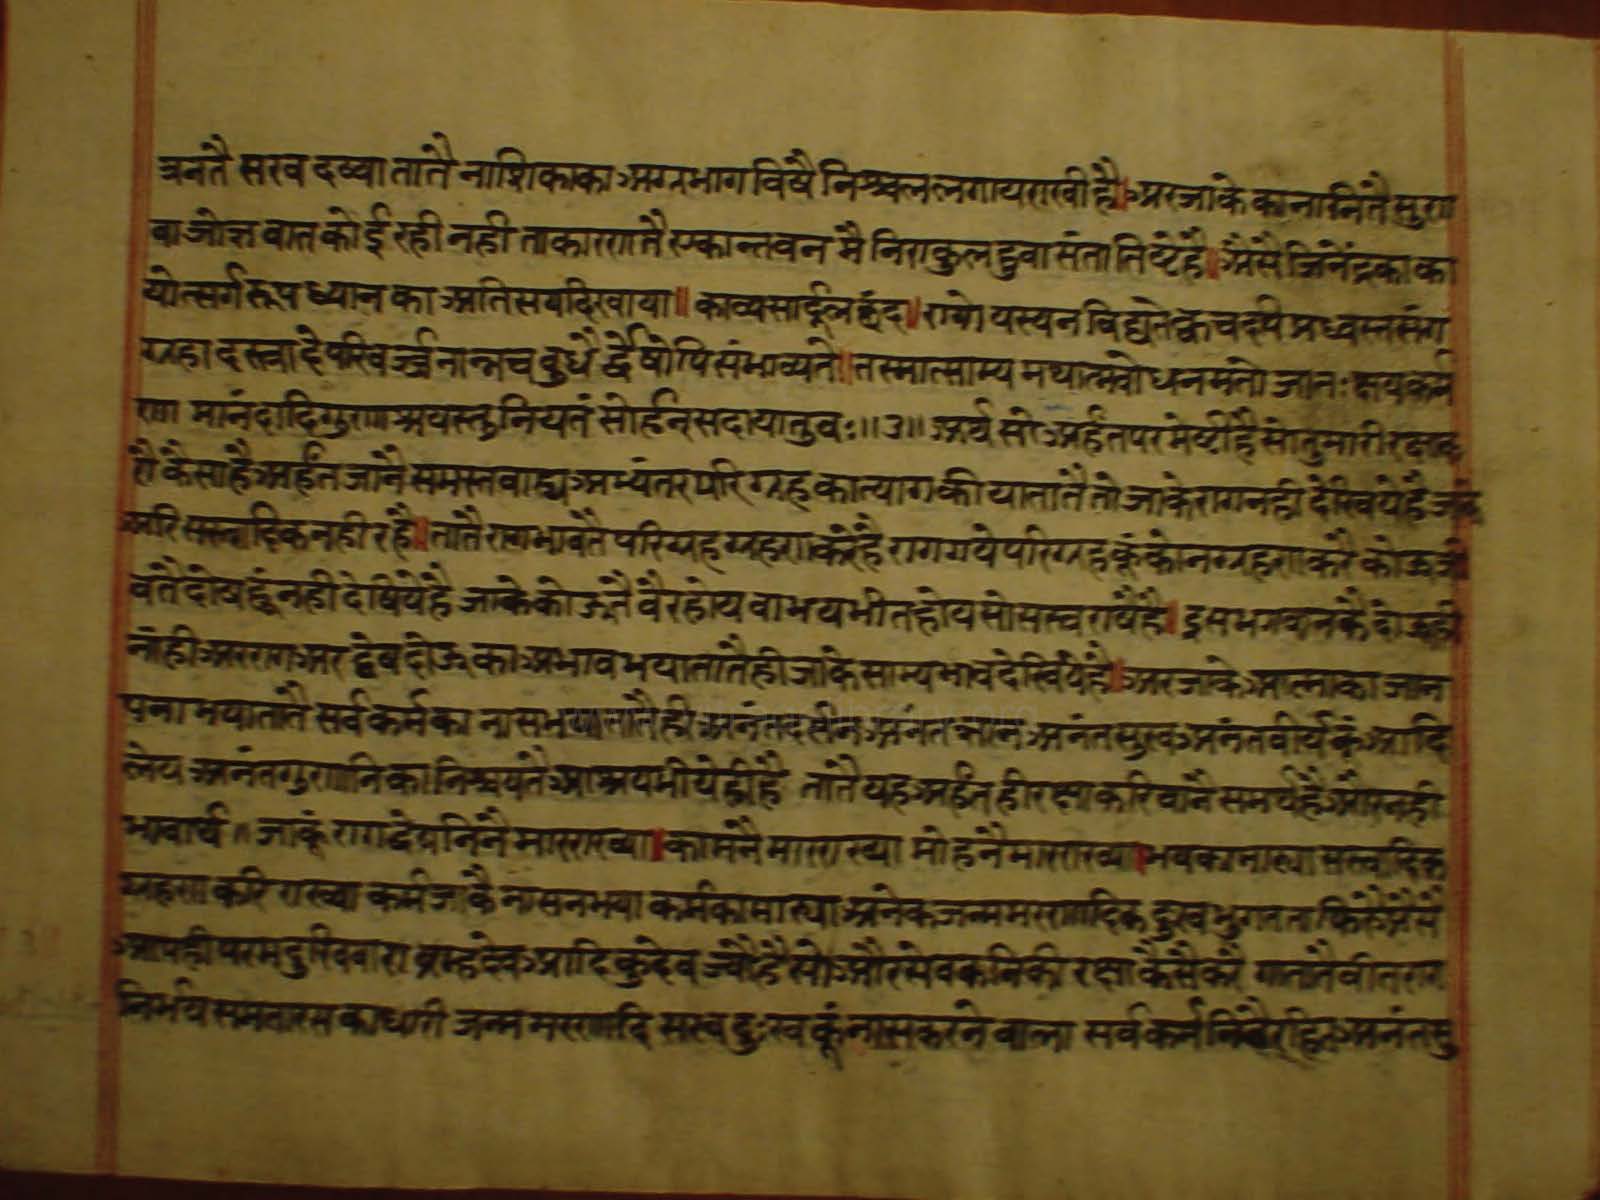 त्रनतै सरव दव्या तातै नाशिकाका अग्रभाग विषै निश्चल लगाय राखी है। अर जाके कानानितै सुण
वा जोग वात कोई रही नही ता कारणतै एकान्त वन मै निराकुल हुवा संता तिष्टै है। अैसै जिनेंद्र का का
योत्सर्ग रूप ध्यान का अतिसय दिखाया॥ काव्य सार्दूल छंद। रागो यस्य न विद्यते क्वचदपि प्रध्वस्तसंग
ग्रहा दस्त्रादे परिवर्ज्जनान्नच वुधै र्द्वेषोपि संभाव्यते। तस्मात्साम्य मथात्मवोधनमतो जातः क्षयकर्म
णा मानंदादिगुणाश्रयस्तु नियतं सोर्हन् सदा पातु वः॥३॥ अर्थ सो अर्हंत परमेष्टी है सो तुमारी रक्षा क
रौ कैसा है अर्हंत जानै समस्त वाह्य अभ्यंतर परिग्रह का त्याग कीया तातै तो जाके राग नही देखिये है जाके
अरि सस्त्रादिक नही रहै। तातै रागभावतै परिग्रह ग्रहण करै है राग गये परिग्रह कूं कोन ग्रहण करै कोऊ जी
वतै दोष हूं नही देषिये है जाके कोऊतै वैर होय वा भयभीत होय सो सस्त्र राषै है। इस भगवान कै दोऊ ही
नांही अर राग अर द्वेष दोऊ का अभाव भया तातै ही जाके साम्यभाव देखिये है। अर जाके आत्मा का जान
पना भया तातै सर्व कर्म का नास भया तातै ही अनंत दर्सन अनंत ज्ञान अनंत सुख अनंत वीर्य कूं आदि
लेय अनंत गुणनि का निश्चयतै आश्रयभी ये ही है तातै यह अर्हंत ही रक्षा करिवानै समर्थ है और नही
भावार्थ॥ जाकूं राग द्वेषनिनै मार राख्या। कामनै मार राख्या मोहनै मार राख्या। भय का मार्या सस्त्रादिक
ग्रहण करि राख्या कर्म जाकै नास न भया कर्म का मार्या अनेक जन्म मरणादिक दुख भुगतता फिरै अैसै
आप ही परम दुखि वारा ब्रम्हदेव आदि कुदेव ज्यो है सो और सेवकनिकी रक्षा कैसै करै गा तातै वीतराग
निर्भय समतारस का धारी जन्म मरणादि सस्व दुःख कूं नास करने वाला सर्व कर्मनितै रहित अनंत सु